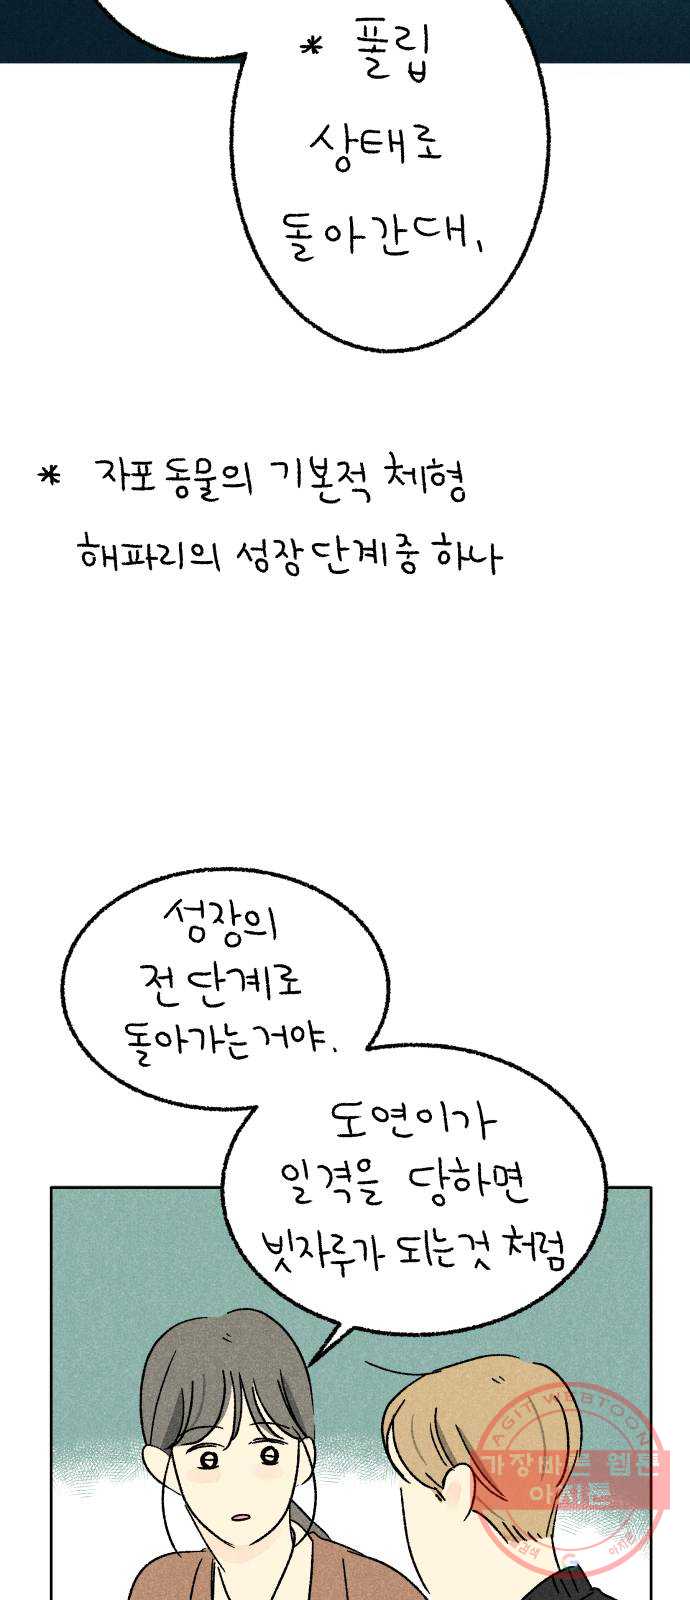 * 폴립
상태로
돌아간대.
* 자포동물의 기본적 체형
해파리의 성장단계중 하나
성장의
전 단계로
돌아가는거야.
도연이가
일격을 당하면
빗자루가 되는것 처럼
AGIT WEBTOON
가장빠른 웹툰
아지툰
검색
G
아지툰